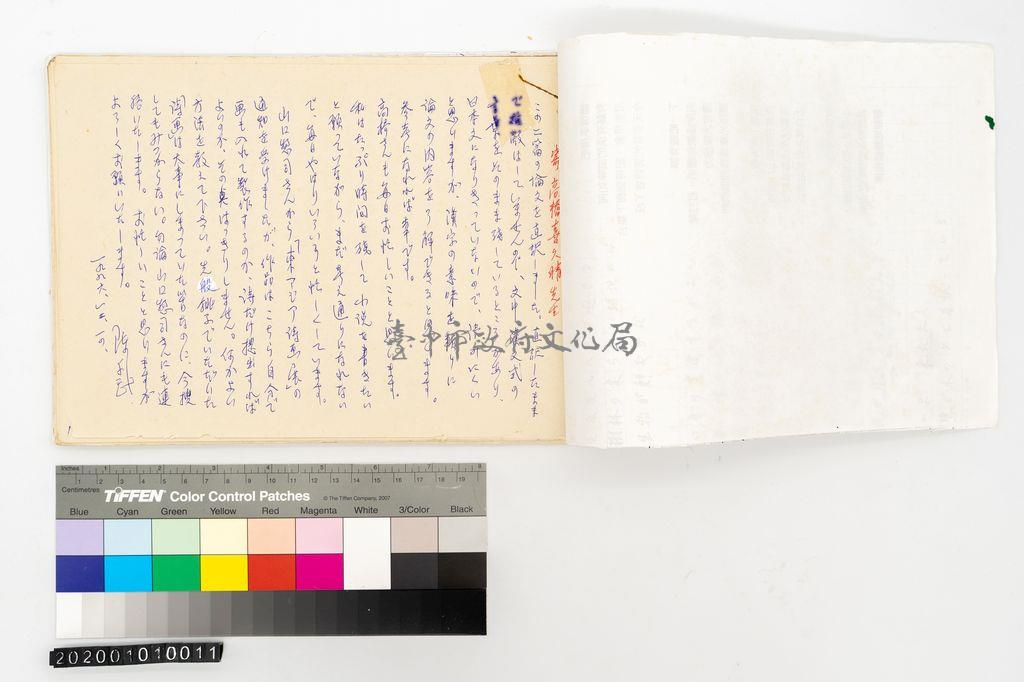 寄高橋喜久晴先生
この二篇の論文を直訳しました。直訳したまま
で推敲はしていませんので、文中、中文式の
言葉をそのまま残しているところがあり、
日本文になりきっていないので、読みにくい
と思いますが、漢字の意味を頼りに
論文の内容を了解できると思います。
参考になれれば幸です。
高橋さんも毎日お忙しいことと思います。
私はたっぷり時間を残して小説を書きたい
と願っていながら、まだ考え通りになれない
で、毎日やはりいろいろと忙しくしています。
山口惣司さんから「東アジア詩画展」の
通知を受けましたが、作品はこちら自分で
画も入れて製作するのか、詩だけ提出すれば
よいのか、その点はっきりしません。何かよい
方法を教えて下さい。先般桃子でいただいた
詩画は大事にしまっていた筈なのに、今捜
してもみつからない。勿論山口惣司さんにも連
絡いたします。お忙しいことと思いますが
よろしくお願いいたします。
陳千武
臺中市政府文化局
Inches 1 2 3 4 5 6 7 8
Centimetres 1 2 3 4 5 6 7 8 9 10 11 12 13 14 15 16 17 18 19
TIFFEN Color Control Patches © The Tiffen Company, 2007
Blue Cyan Green Yellow Red Magenta White 3/Color Black
202001010011